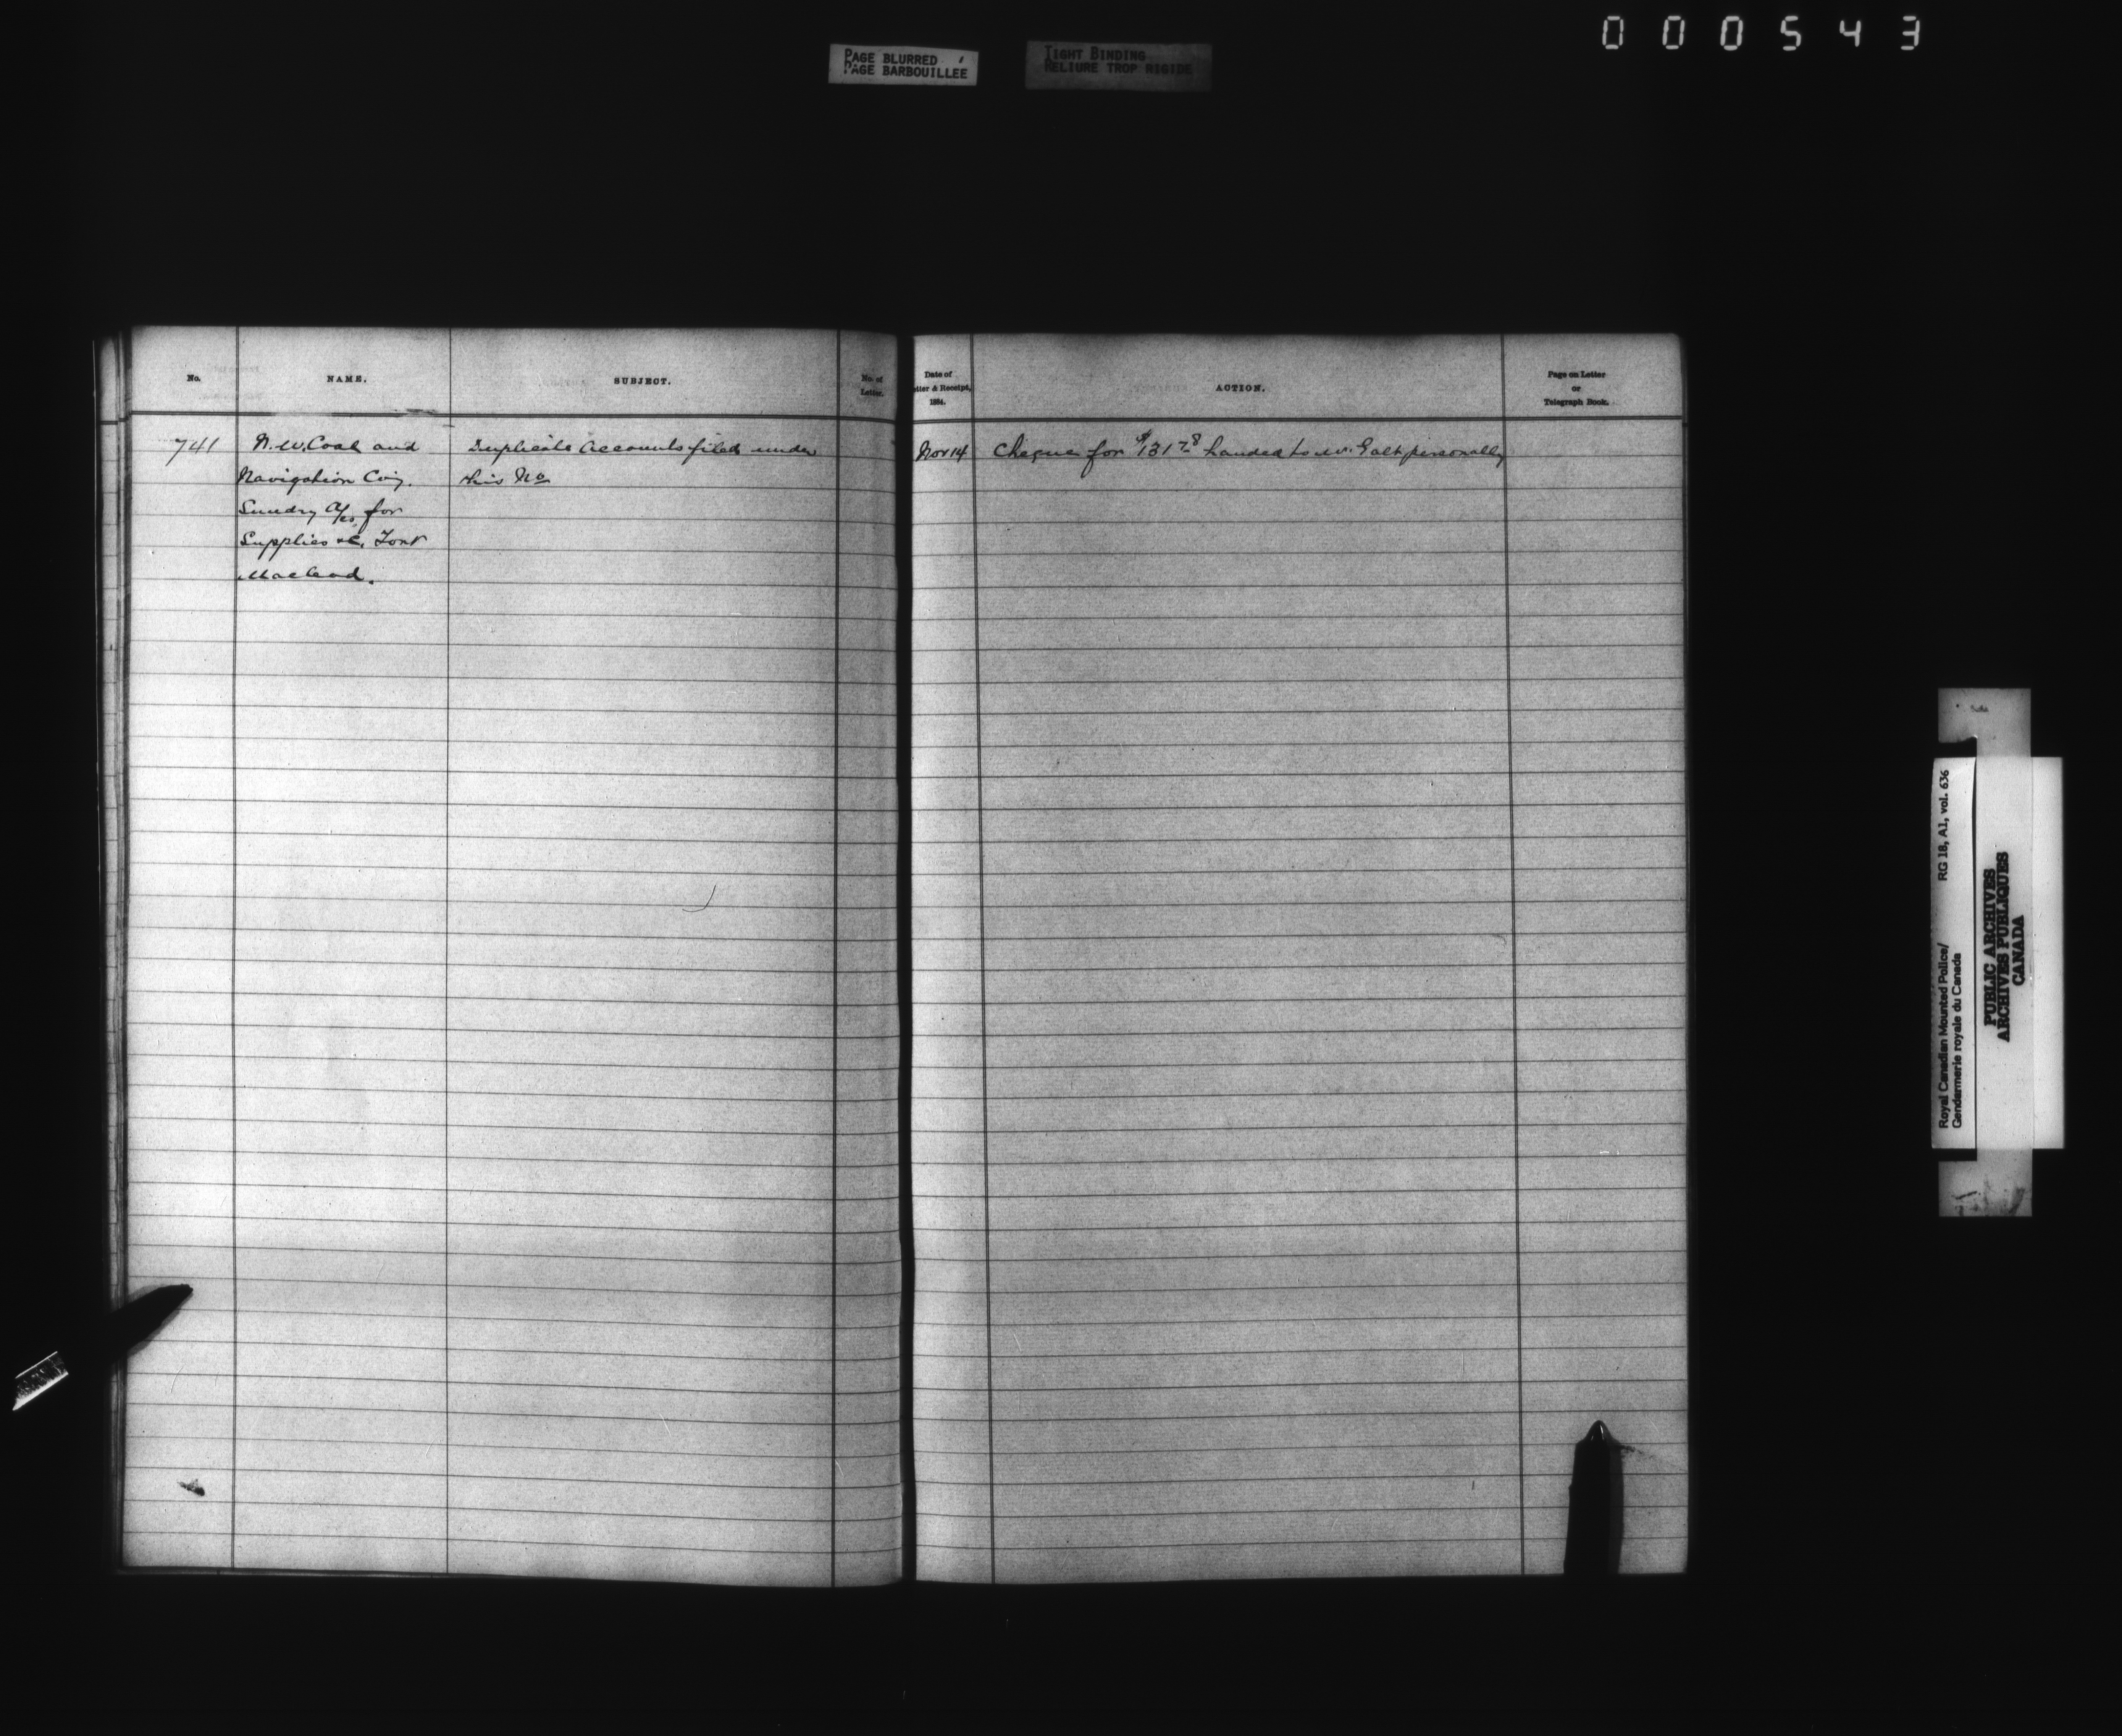 000543
PAGE BLURRED
PAGE BARBOUILLEE
TIGHT BINDING
RELIURE TROP RIGIDE
No.
NAME.
SUBJECT.
No. of
Letter.
Date of
tter & Receipt,
1884.
ACTION.
Page on Letter
or
Telegraph Book.
741
N. W. Coal and
Navigation Coy.
Sundry A/cs for
Supplies &c. Fort
Macleod.
Duplicate Accounts filed under
this No
Nov 14
Cheque for $131 78 handed to Mr. Galt personally
Royal Canadian Mounted Police/ RG 18, A1, vol. 636
Gendarmerie royale du Canada
PUBLIC ARCHIVES
ARCHIVES PUBLIQUES
CANADA